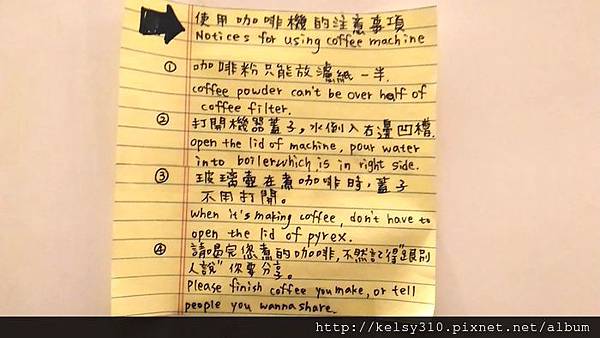 使用咖啡機的注意事項
Notices for using coffee machine
① 咖啡粉只能放濾紙一半.
coffee powder can't be over half of
coffee filter.
② 打開機器蓋子,水倒入右邊凹槽.
open the lid of machine, pour water
into boiler which is in right side.
③ 玻璃壺在煮咖啡時,蓋子
不用打開。
when it's making coffee, don't have to
open the lid of pyrex.
④ 請喝完您煮的咖啡,不然記得"跟別
人說"你要分享。
Please finish coffee you make, or tell
people you wanna share.
http://kelsy310.pixnet.net/album